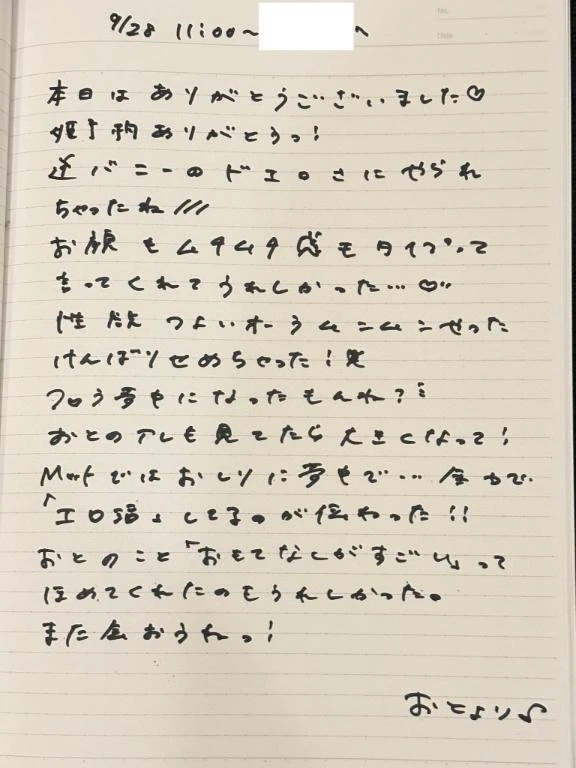 9/28 11:00~ へ
本日は ありがとうございました♡
姫予約ありがとうっ!
逆バニーの ドエロさに やられ
ちゃったね///
お顔も ムチムチ感も タイプって
言ってくれて うれしかった…♡
性欲 つよいオーラ ムンムンやった
けん ばり せめちゃった!笑
フロう 夢中になったもんね?
おとのアレも 見てたら 大きくなって!
Mットでは おしりに 夢中で… 全力で
「エロ活」してるのが 伝わった!!
おとのこと「おもてなしがすごい」って
ほめてくれたのも うれしかった。
また 会おうねっ!
おとより♪